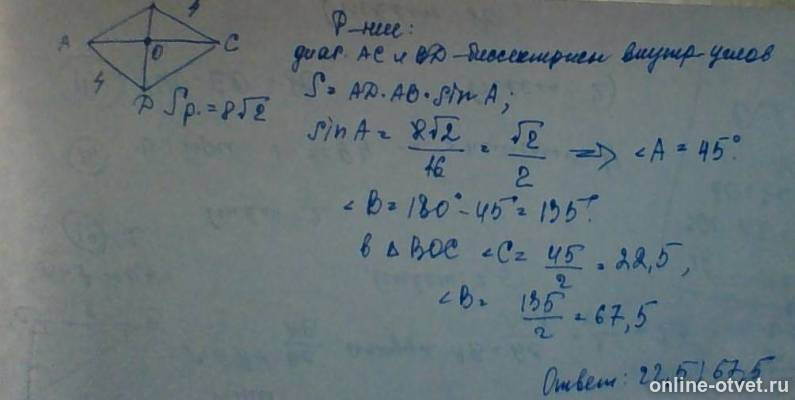 4
Р-ние:
A O C
диаг. AC и BD - биссектрисы внутр. углов
4
D Sр. = 8√2
S = AD·AB·sin A;
sin A = 8√2/16 = √2/2 ⇒ ∠A = 45°.
∠B = 180° - 45° = 135°.
в △ BOC ∠C = 45/2 = 22,5,
∠B = 135/2 = 67,5
Ответ: 22,5; 67,5
online-otvet.ru